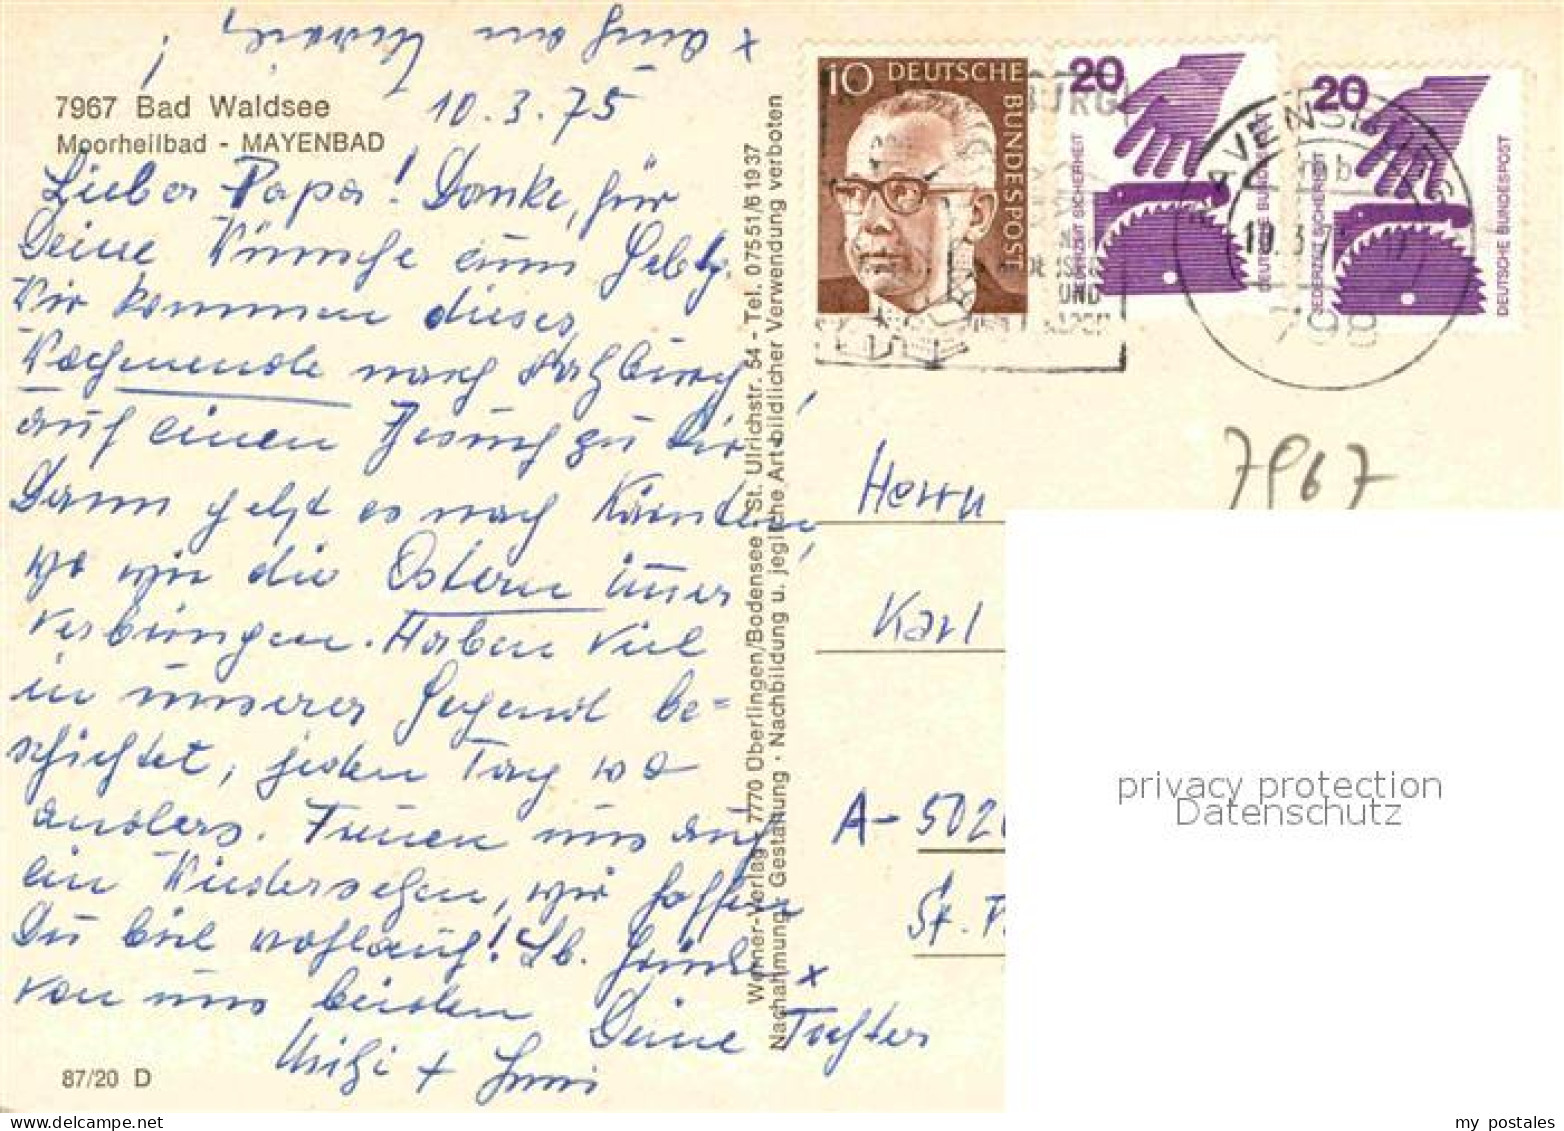 x auch an
!
7967 Bad Waldsee
Moorheilbad - MAYENBAD
10.3.75
Lieber Papa! Danke, für
Deine Wünsche zum Gebtg.
Wir kommen dieses
Wochenende nach Salzburg
auf einen Besuch zu Dir
Dann geht es nach Kärnten,
wo wir die Ostern
verbringen. Haben viel
in unserer Gegend be=
sichtet, jeden Tag wo
anders. Freuen uns auf
ein Wiedersehen, wir hoffen
Du bist wohlauf! Lb. Grüße x
von uns beiden
Deine Tochter
87/20 D
Werner-Verlag 7770 Überlingen/Bodensee St. Ulrichstr. 54 - Tel. 07551/61937
Nachahmung, Gestaltung · Nachbildung u. jegliche Art bildlicher Verwendung verboten
10 DEUTSCHE BUNDESPOST
20 JEDERZEIT SICHERHEIT DEUTSCHE BUNDESPOST
20 JEDERZEIT SICHERHEIT DEUTSCHE BUNDESPOST
UND
798
7967
Herrn
Karl
A - 502
St.
privacy protection
Datenschutz
my postales